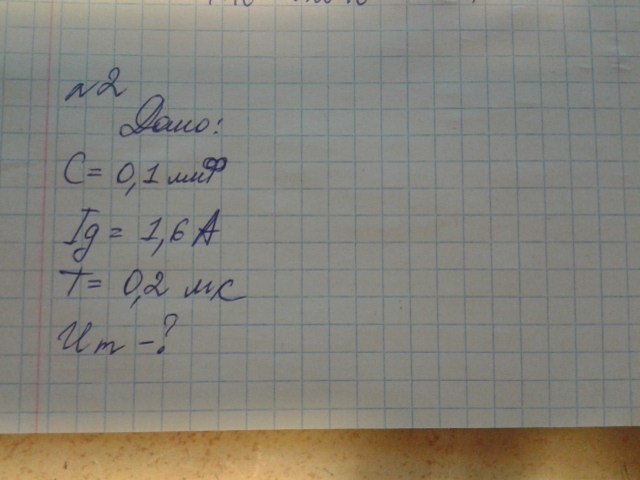 №2
Дано:
C = 0,1 мкФ
Iд = 1,6 А
T = 0,2 мк
Um - ?